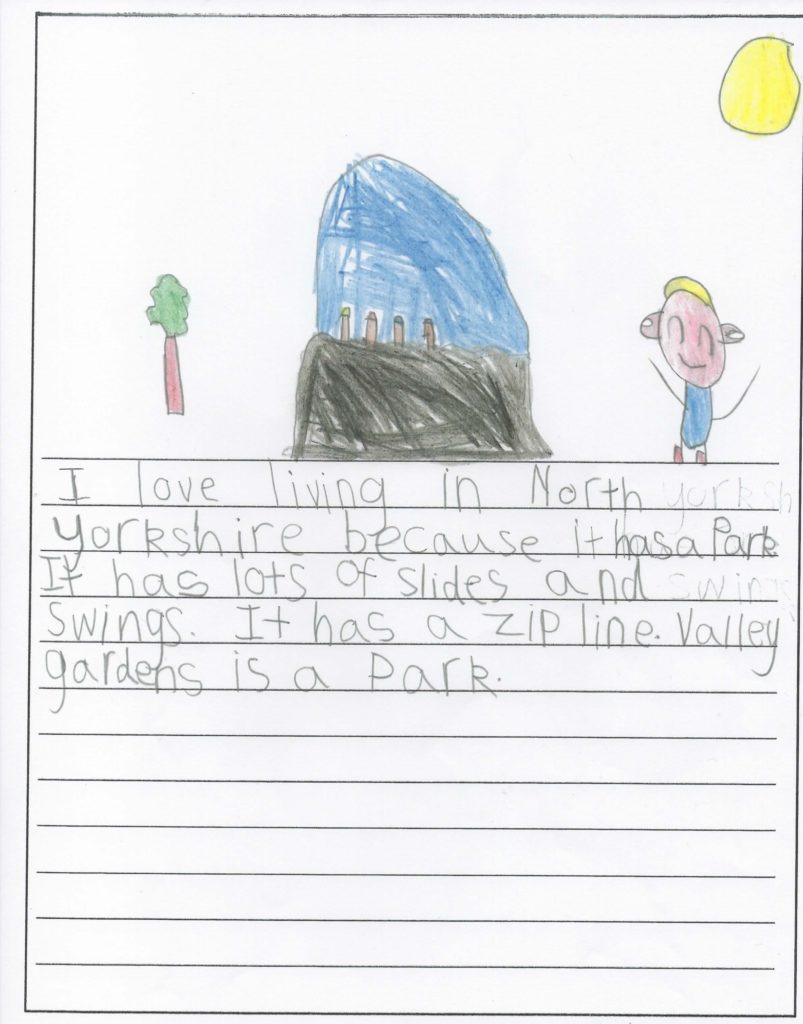 I love living in North yorksh
yorkshire because it has a Park
It has lots of slides and swing
swings. It has a zip line. Valley
gardens is a Park.